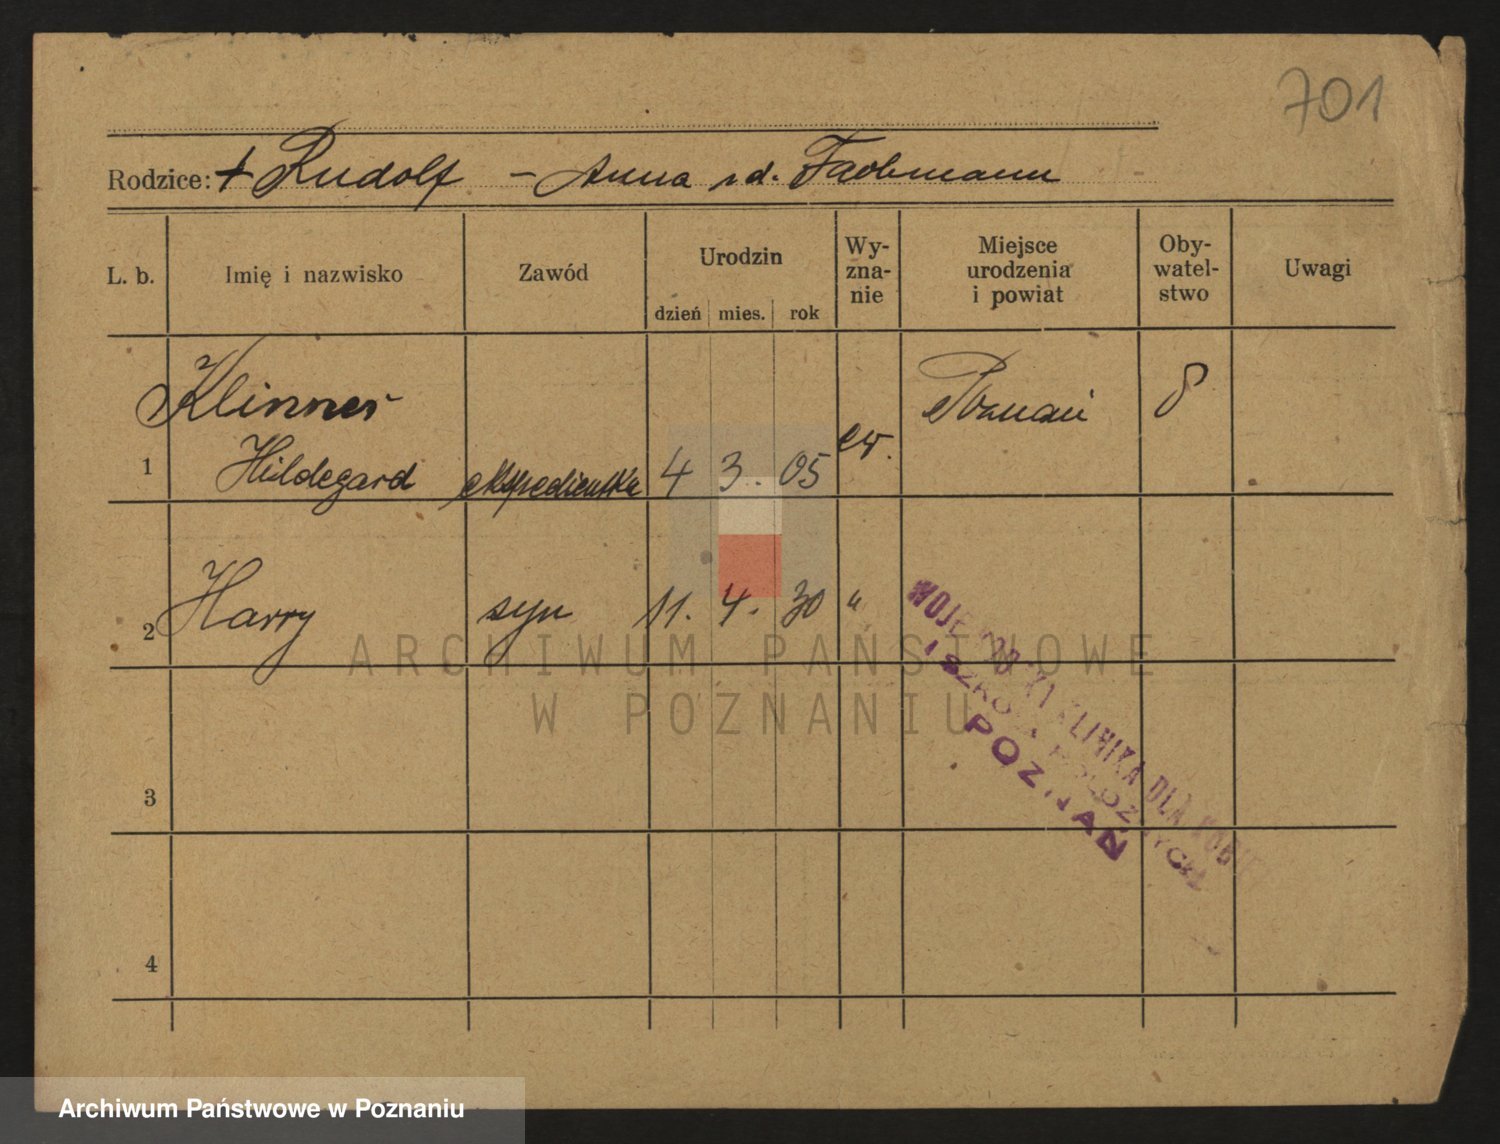 701
Rodzice: + Rudolf - Anna z d. Fachmann
L. b. Imię i nazwisko Zawód Urodzin dzień mies. rok Wy-zna-nie Miejsce urodzenia i powiat Oby-watel-stwo Uwagi
Klinner Poznań
1 Hildegard ekspedientka 4 3. 05 ew.
2 Harry syn 11. 4. 30 "
3
4
KLINIKA DLA KOBIET
I SZKOŁA POŁOŻNYCH
POZNAŃ
ARCHIWUM PAŃSTWOWE
W POZNANIU
Archiwum Państwowe w Poznaniu